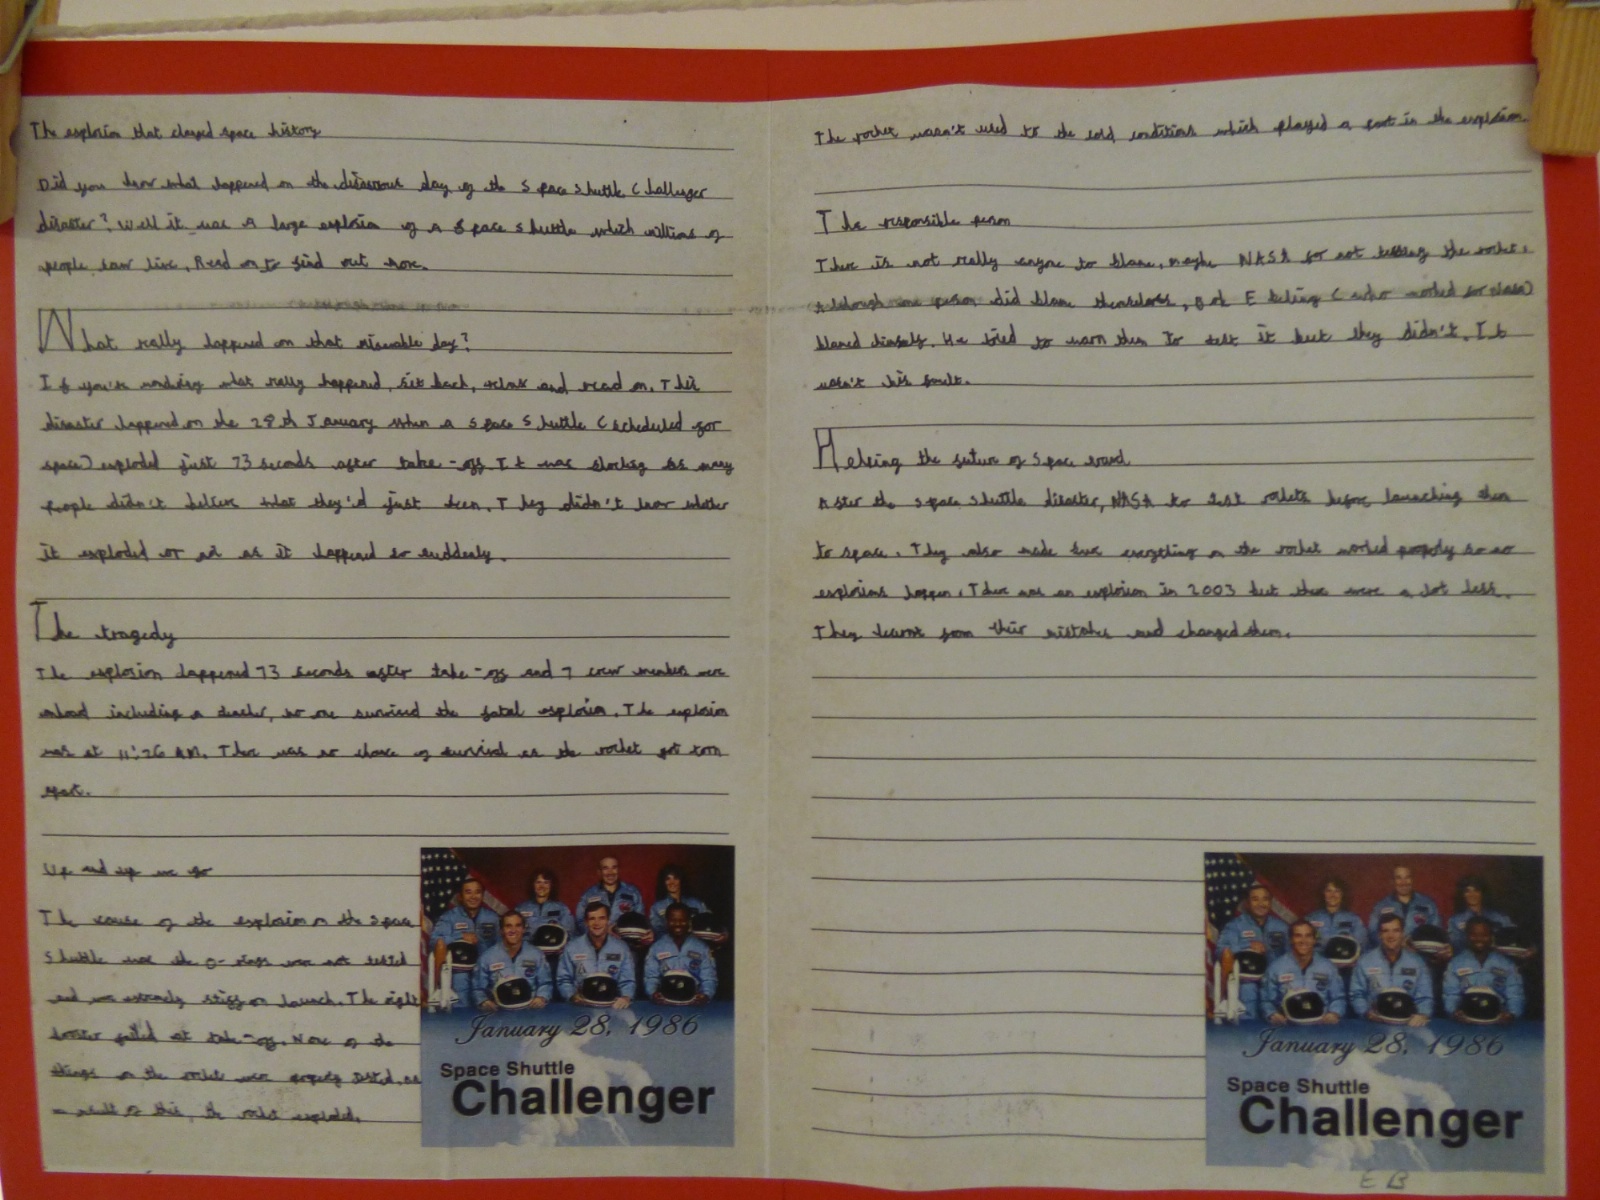 The explosion that changed space history
Did you know what happened on the disastrous day of the Space Shuttle Challenger
disaster? Well it was a large explosion of a Space Shuttle which millions of
people saw live. Read on to find out more.
What really happened on that miserable day?
If you're wondering what really happened, sit back, relax and read on. This
disaster happened on the 28th January when a Space Shuttle (scheduled for
space) exploded just 73 seconds after take-off. It was shocking as many
people didn't believe what they'd just seen. They didn't know whether
it exploded or not as it happened so suddenly.
The tragedy
The explosion happened 73 seconds after take-off and 7 crew members were
onboard including a teacher, no one survived the fatal explosion. The explosion
was at 11:26 AM. There was no chance of survival as the rocket got torn
apart.
Up and up we go
The cause of the explosion on the Space
Shuttle was the O-rings were not tested
and were extremely stiff on launch. The right
booster failed at take-off. None of the
things on the rocket were properly tested, as
a result of this, the rocket exploded.
January 28, 1986
Space Shuttle
Challenger
The rocket wasn't used to the cold conditions which played a part in the explosion.
The responsible person
There is not really anyone to blame, maybe NASA for not testing the rocket.
Although one person did blame themselves, Bob (who worked for Nasa)
blamed himself. He tried to warn them to test it but they didn't. It
wasn't his fault.
Helping the future of Space travel
After the Space Shuttle disaster, NASA to test rockets before launching them
to space. They also made sure everything on the rocket worked properly so no
explosions happen. There was an explosion in 2003 but there were a lot less.
They learnt from their mistakes and changed them.
January 28, 1986
Space Shuttle
Challenger
EB